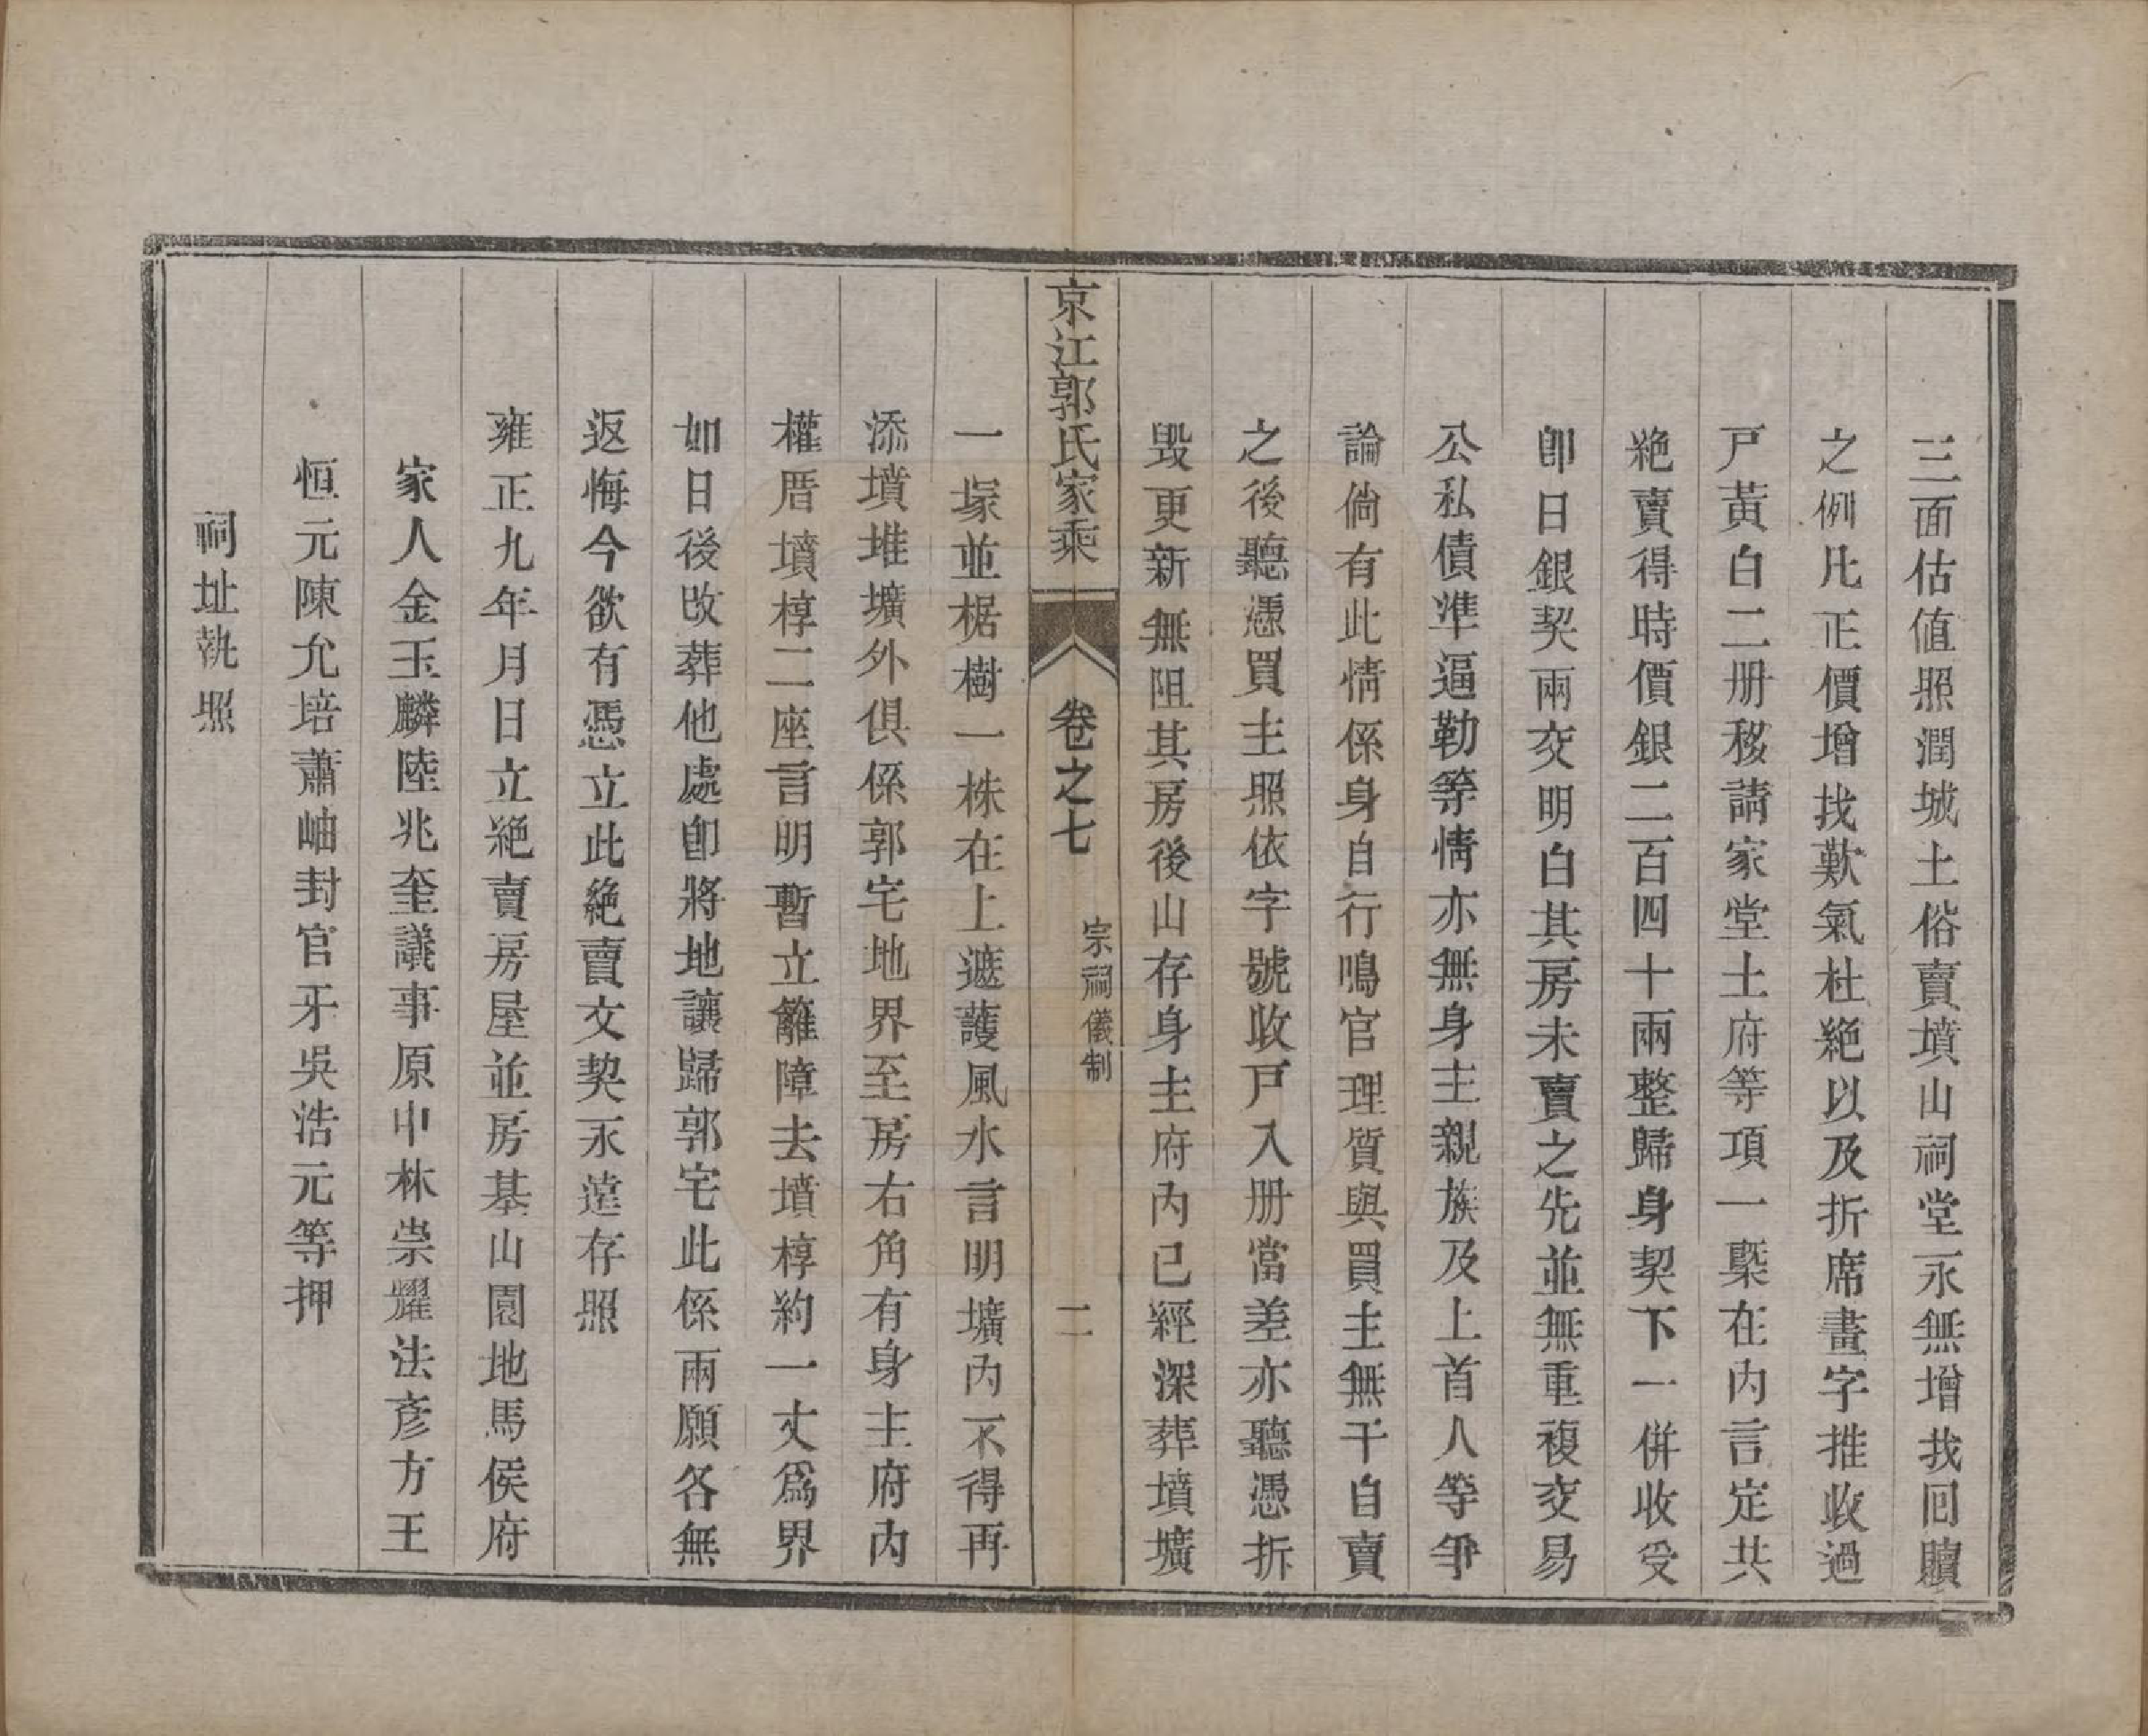 三面估值照潤城土俗賣墳山祠堂永無增找回贖
之例凡正價增找歎氣杜絕以及折席畫字推收過
戸黃白二册移請家堂土府等項一槩在內言定共
絕賣得時價銀二百四十兩整歸身契下一併收受
卽日銀契兩交明白其房未賣之先並無重複交易
公私債準逼勒等情亦無身主親族及上首人等爭
論倘有此情係身自行鳴官理質與買主無干自賣
之後聽憑買主照依字號收戸入册當差亦聽憑折
毀更新無阻其房後山存身主府內已經深葬墳壙
京江郭氏家乘
卷之七
宗祠儀制
二
一塚並椐樹一株在上遮護風水言明壙內不得再
添墳堆壙外俱係郭宅地界至房右角有身主府內
權厝墳椁二座言明暫立籬障去墳椁約一丈爲界
如日後改葬他處卽將地讓歸郭宅此係兩願各無
返悔今欲有憑立此絕賣文契永遠存照
雍正九年月日立絕賣房屋並房基山園地馬侯府
家人金玉麟陸兆奎議事原中林崇耀法彥方王
恒元陳允培蕭岫封官牙吳浩元等押
祠址執照